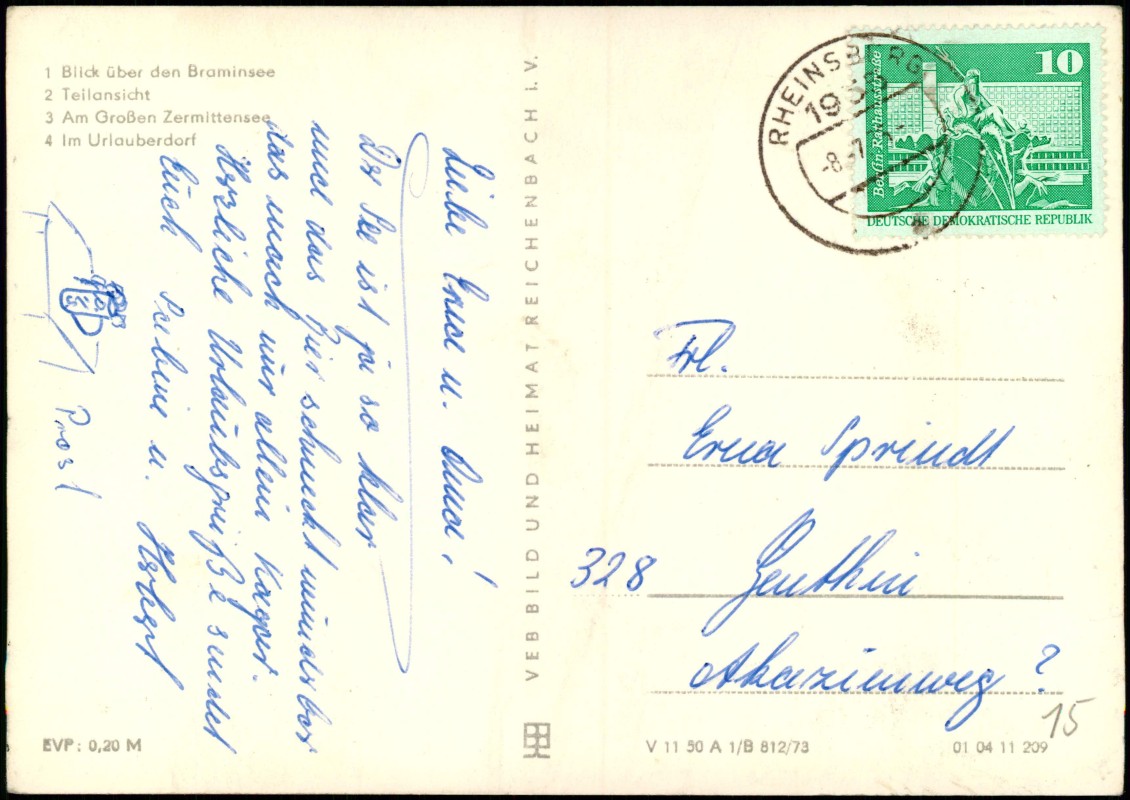 1 Blick über den Braminsee
2 Teilansicht
3 Am Großen Zermittensee
4 Im Urlauberdorf
Liebe Erna u.
Der See ist ja so klar
und das Bier schmeckt wunderbar
das macht nur allein Kagar.
Herzliche Urlaubsgrüße sendet
Euch Sabine u. Herbert
Prost
EVP: 0,20 M
VEB BILD UND HEIMAT REICHENBACH i. V.
RHEINSBERG
1955
-8.-7
10
Berlin-Rathausstraße
DEUTSCHE DEMOKRATISCHE REPUBLIK
Frl.
Erna Sprindt
328 Genthin
Akazienweg ?
15
V 11 50 A 1/B 812/73
01 04 11 209